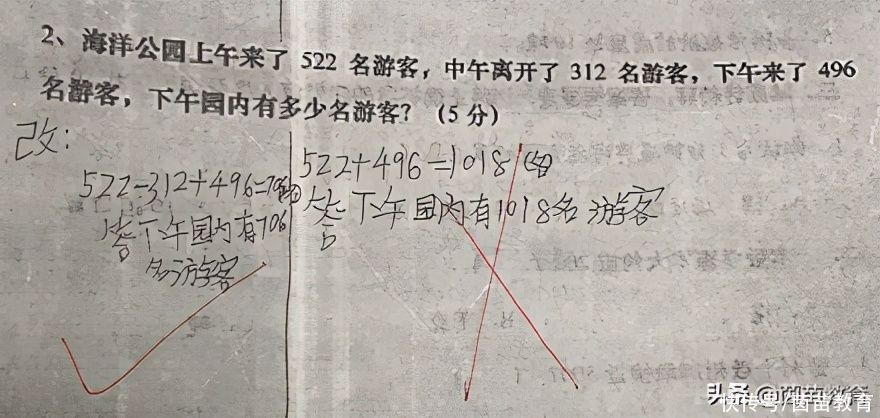 2、海洋公园上午来了 522 名游客，中午离开了 312 名游客，下午来了 496
名游客，下午园内有多少名游客？（5 分）
改：
522-312+496=706(名)
答下午园内有706
名游客
522+496=1018(名)
答下午园内有1018名游客
快传号/茵苗教育